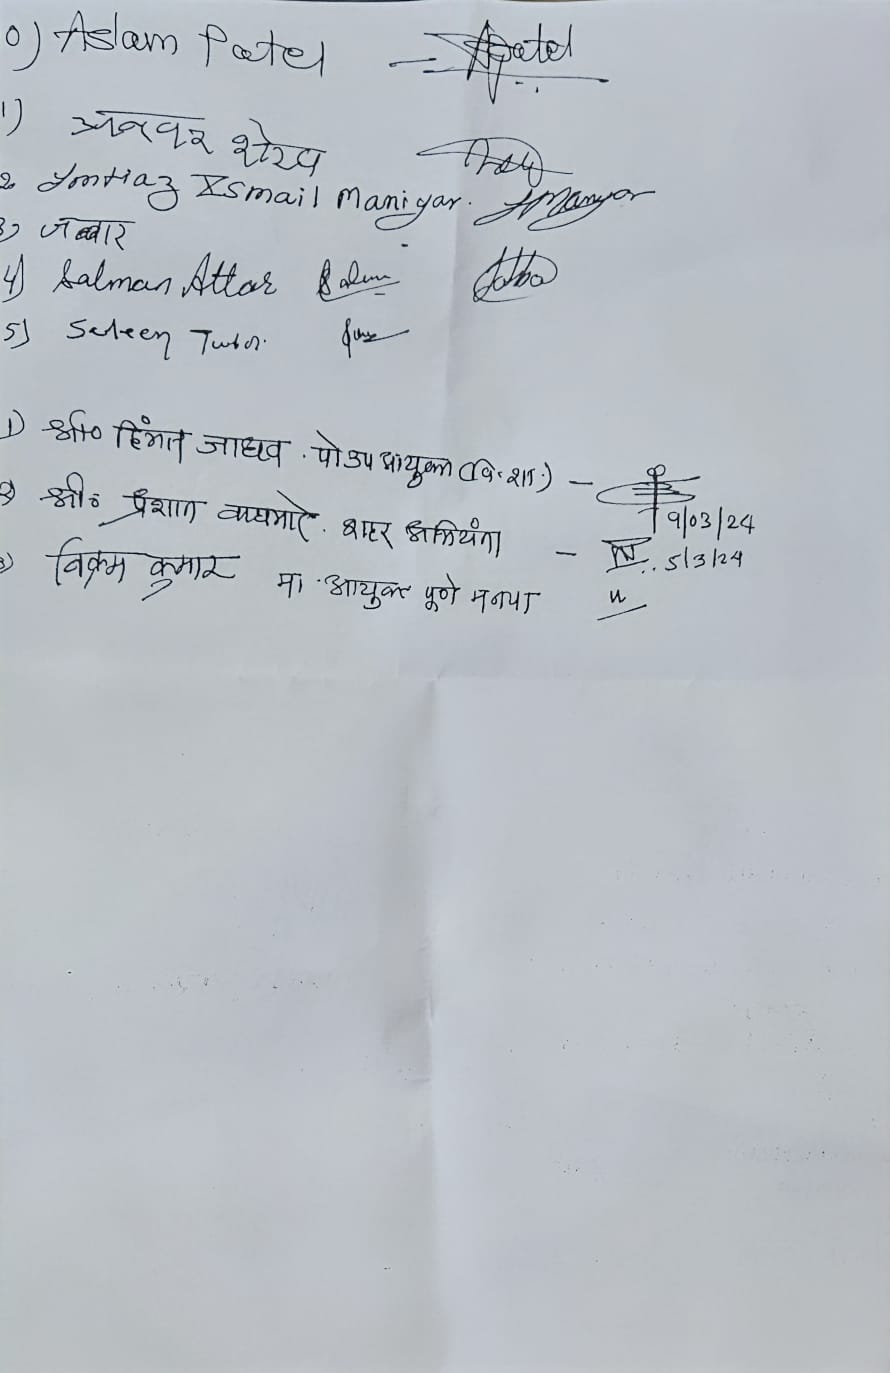 0) Aslam Patel - Apatel
1) अनवर शेख
2. Imtiaz Ismail Maniyar. IManyar
3) जब्बार
4) Salman Attar Salm
5)
1) श्री० हिंमत जाधव. पो उप आयुक्त (वि. शा.) -
9/03/24
2) श्री० प्रशांत वाघमारे. शहर अभियंता - 5/3/24
3) विक्रम कुमार मा. आयुक्त पूणे मनपा